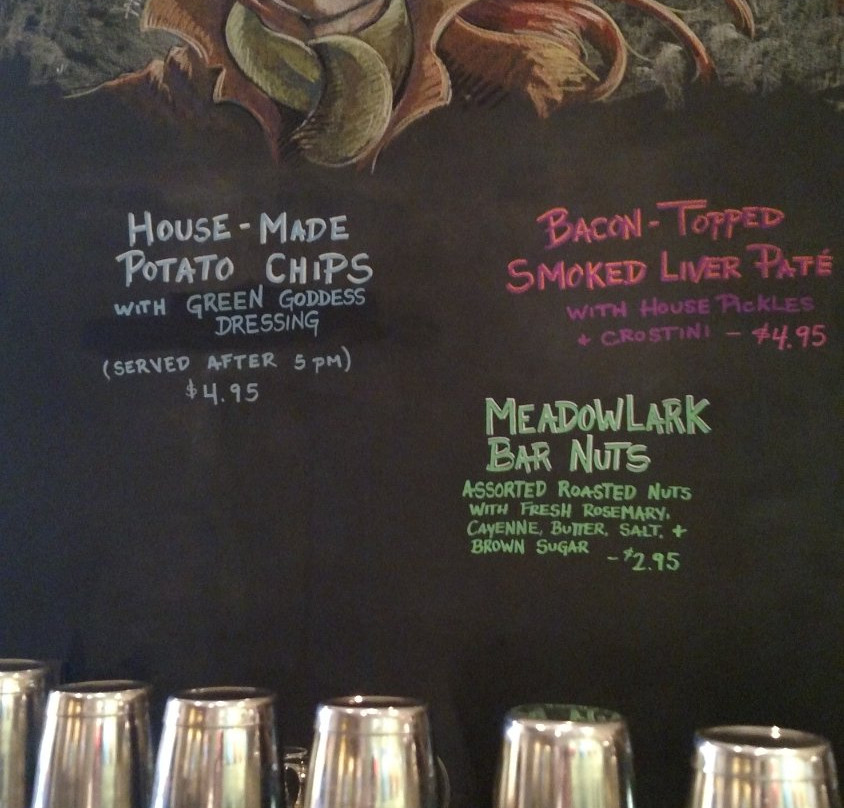 HOUSE-MADE
POTATO CHIPS
WITH GREEN GODDESS
DRESSING
(SERVED AFTER 5 PM)
$4.95
BACON-TOPPED
SMOKED LIVER PATÉ
WITH HOUSE PICKLES
+ CROSTINI - $4.95
MEADOWLARK
BAR NUTS
ASSORTED ROASTED NUTS
WITH FRESH ROSEMARY,
CAYENNE, BUTTER, SALT, +
BROWN SUGAR - $2.95